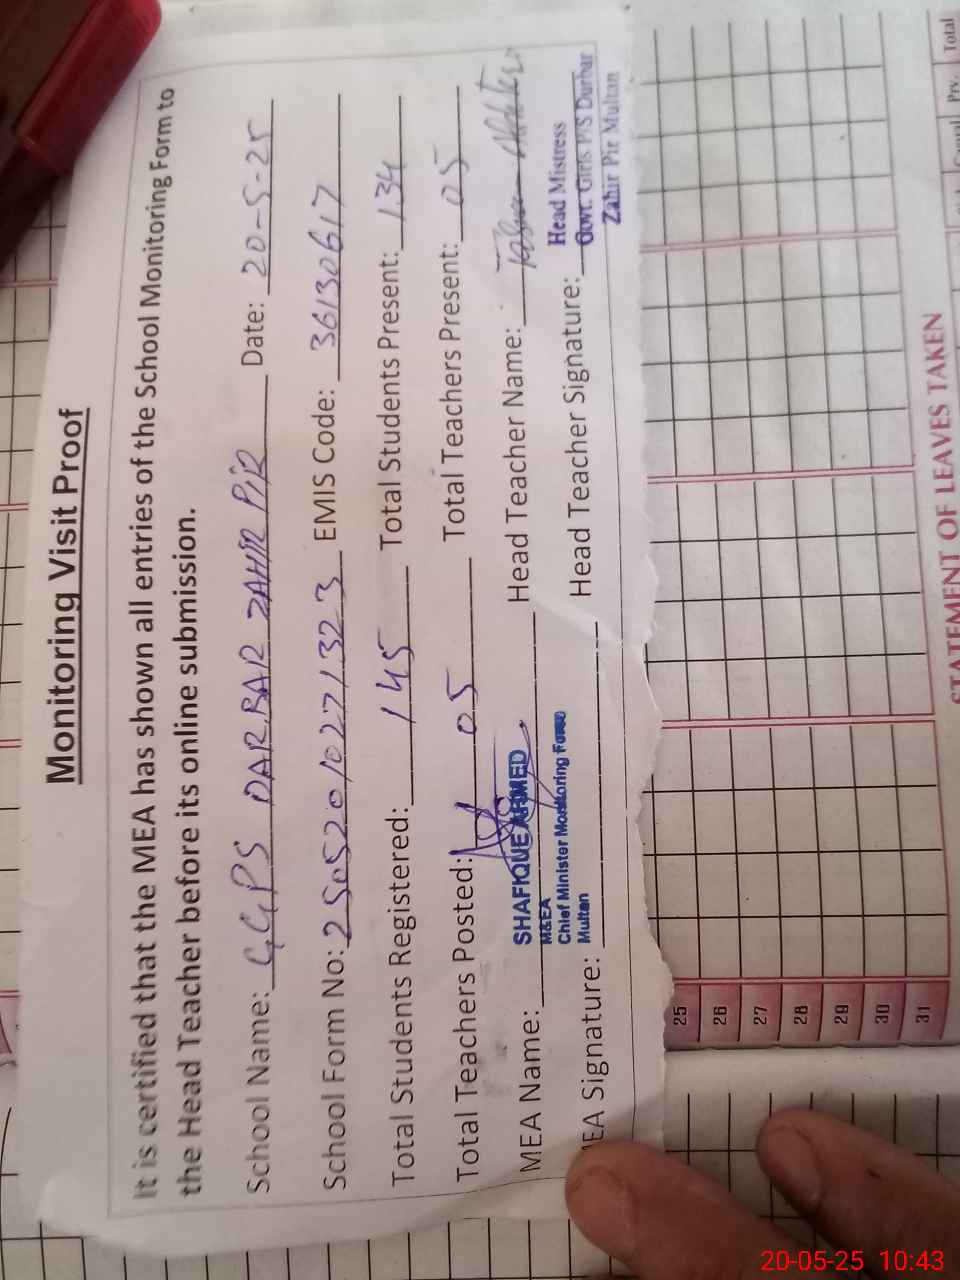 Monitoring Visit Proof
It is certified that the MEA has shown all entries of the School Monitoring Form to
the Head Teacher before its online submission.
School Name: GGPS DARBAR ZAHIR PIR Date: 20-5-25
School Form No: 2505201027132 23 EMIS Code: 36130617
Total Students Registered: 145 Total Students Present: 134
Total Teachers Posted: 05 Total Teachers Present: 05
MEA Name: Head Teacher Name:
SHAFIQUE AHMED
M&EA
Chief Minister Monitoring Force
Multan
EA Signature: Head Teacher Signature:
Head Mistress
Govt. Girls P/S Durbar
Zahir Pir Multan
25
26
27
28
29
30
31
STATEMENT OF LEAVES TAKEN
Prv.
Total
20-05-25 10:43